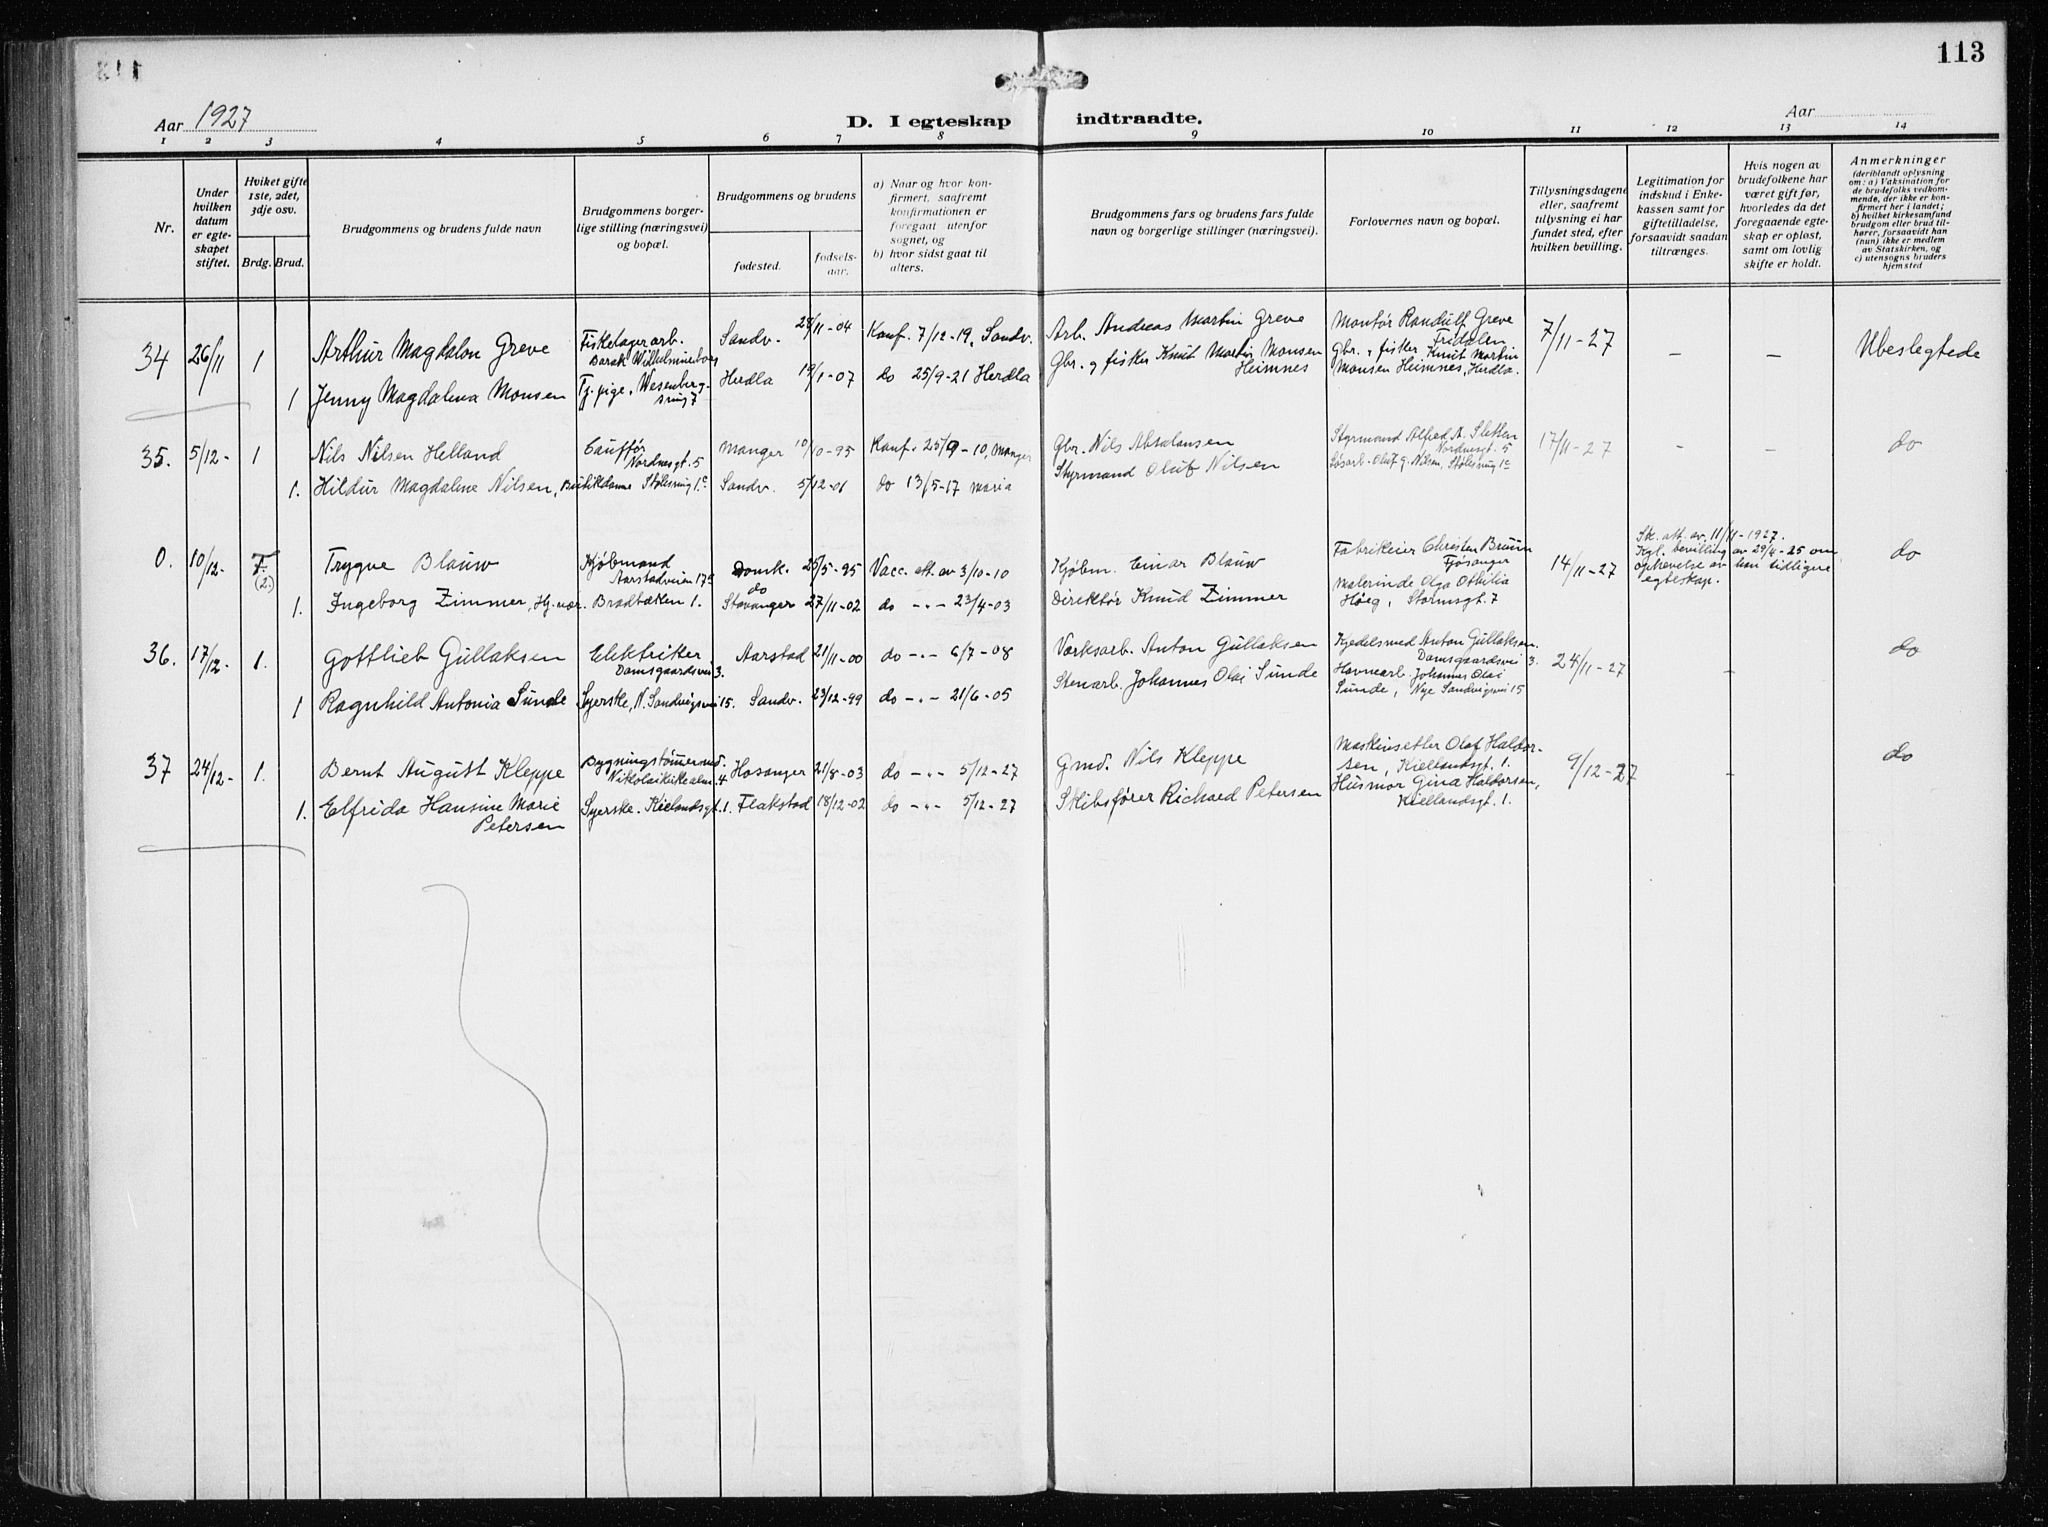 113
Aar 1927
D. I egteskap indtraadte.
Aar
1 2 3 4 5 6 7 8 9 10 11 12 13 14
Nr.
Under
hvilken
datum
er egte-
skapet
stiftet.
Hviket gifte
1ste, 2det,
3dje osv.
Brdg. Brud.
Brudgommens og brudens fulde navn
Brudgommens borger-
lige stilling (næringsvei)
og bopæl.
Brudgommens og brudens
fødested.
fødsels-
aar.
a) Naar og hvor kon-
firmert, saafremt
konfirmationen er
foregaat utenfor
sognet, og
b) hvor sidst gaat til
alters.
Brudgommens fars og brudens fars fulde
navn og borgerlige stillinger (næringsvei).
Forlovernes navn og bopæl.
Tillysningsdagene
eller, saafremt
tillysning ei har
fundet sted, efter
hvilken bevilling.
Legitimation for
indskud i Enke-
kassen samt for
giftetilladelse,
forsaavidt saadan
tiltrænges.
Hvis nogen av
brudefolkene har
været gift før,
hvorledes da det
foregaaende egte-
skap er opløst,
samt om lovlig
skifte er holdt.
Anmerkninger
(deriblandt oplysning
om: a) Vaksination for
de brudefolks vedkom-
mende, der ikke er kon-
firmert her i landet;
b) hvilket kirkesamfund
brudgom eller brud til-
hører, forsaavidt han
(hun) ikke er medlem
av Statskirken, og
c) utensogns bruders
hjemsted
34 26/11 1 Arthur Magdalon Greve
Fiskelagerarb.
Barak Wilhelmineborg
Sandv. 28/11-04 Konf. 7/12-19, Sandv.
Arb. Andreas Martin Greve
Montør Randulf Greve
Fridalen
7/11-27 - - Ubeslegtede
1 Jenny Magdalena Monsen
Tj.pige, Wesenberg-
smug 7
Herdla 19/1-07 do 25/9-21 Herdla
Gbr. og fisker Knut Martin Monsen
Heimnes
Gbr. & fisker Knut Martin
Monsen Heimnes, Herdla.
35. 5/12- 1 Nils Nilsen Helland
Cauffør
Nordnesgt. 5
Manger 10/10-95 Konf. 25/9-10, Manger
Gbr. Nils Absalonsen
Styrmand Alfred A. Sletten
Nordnesgt. 5
17/11-27 - - do
1. Hildur Magdalene Nilsen, Butikdame Stølesmug 1c
Sandv. 5/12-01 do 13/5-17 Maria
Styrmand Oluf Nilsen
Løsarb. Oluf G. Nilsen, Stølesmug 1c
0. 10/12- F. (2.) Trygve Blauw
Kjøbmand
Aarstadveien 17c
Domk. 25/5-95 Vacc. att. av 3/10-10
Kjøbm. Einar Blauw
Fabrikeier Christen Bruun
Fjøsanger
14/11-27
Sk. att. av. 11/11-1927.
Kgl. bevilling av 29/4-25 om
ophevelse av han tidligere
egteskap.
do
1. Ingeborg Zimmer, Hj.vær. Bradbækken 1.
do
Stavanger 27/11-02 do -"- 23/4-03
Direktør Knud Zimmer
Malerinde Olga Othilia
Høeg, Stormsgt. 7
36. 17/12- 1. Gottlieb Gullaksen
Elektriker
Damsgaardsvei 3.
Aarstad 21/11-00 do -"- 6/7-08
Værksarb. Anton Gullaksen
Kjedelsmed Anton Gullaksen.
Damsgaardsvei 3.
24/11-27 - do
1 Ragnhild Antonia Sunde
Syerske, N. Sandvigsvei 15. Sandv. 23/12-99 do -"- 21/6-05
Stenarb. Johannes Olai Sunde
Havnearb. Johannes Olai
Sunde, Nye Sandvigsvei 15
37 24/12- 1. Bernt August Kleppe
Bygningstømmermd.
Nikolaikirkealm. 4
Hosanger 21/8-03 do -"- 5/12-27
Gmd. Nils Kleppe
Maskinsetter Olaf Haldor-
sen, Kiellandsgt. 1.
9/12-27 - do
1. Elfrida Hansine Marie
Petersen
Syerske. Kiellandsgt. 1. Flakstad 18/12-02 do -"- 5/12-27
Skibsfører Richard Petersen
Husmor Gina Haldorsen,
Kiellandsgt. 1.